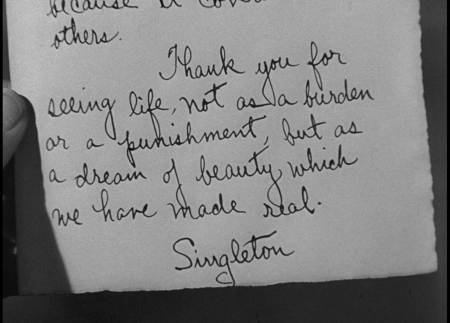 because it
others.
Thank you for
seeing life, not as a burden
or a punishment, but as
a dream of beauty which
we have made real.
Singleton